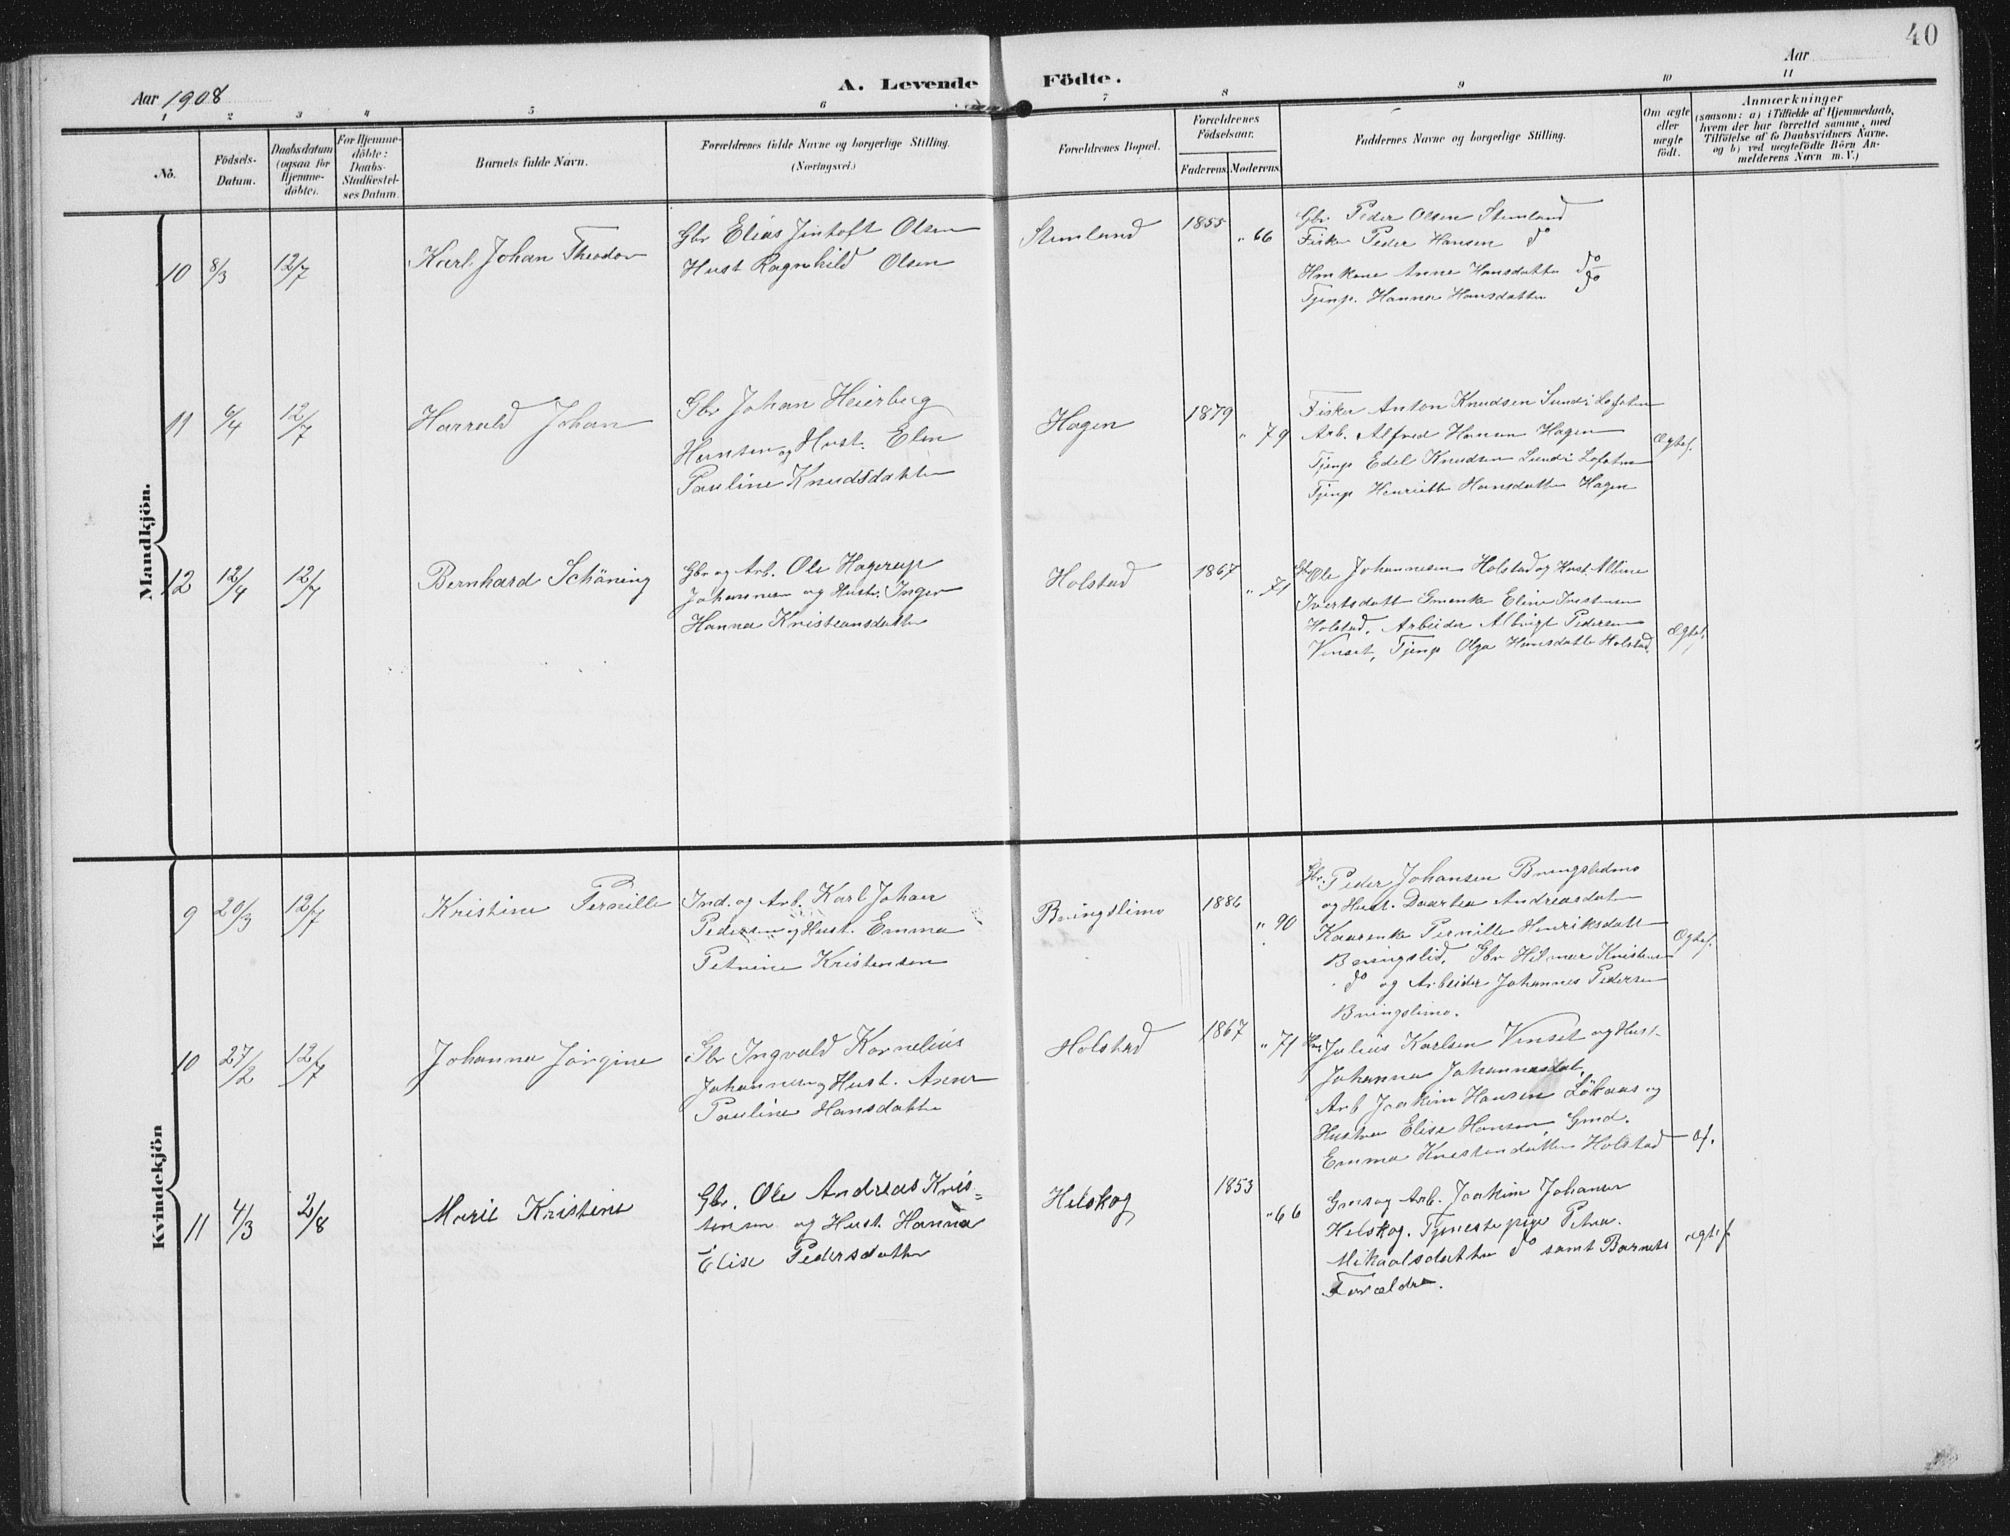 40
Aar 1908
A. Levende Födte.
Aar
1 2 3 4 5 6 7 8 9 10 11
No.
Födsels-Datum.
Daabsdatum (ogsaa for Hjemmedöbte).
For Hjemmedöbte: Daabs-Stadfæstelses Datum.
Barnets fulde Navn.
Forældrenes fulde Navne og borgerlige Stilling. (Næringsvei.)
Forældrenes Bopæl.
Forældrenes Födselsaar.
Faderens. Moderens.
Faddernes Navne og borgerlige Stilling.
Om ægte eller uægte födt.
Anmærkninger
(saasom: a) i Tilfælde af Hjemmedaab, hvem der har forrettet samme, med Tilföielse af to Daabsvidners Navne. og b) ved uægtefödte Börn Anmelderens Navn m. V.)
Mandkjön.
10 8/3 12/7 Karl Johan Theodor
Gbr Elias Jentoft Olsen
Hust Ragnhild Olsen
Stemland 1855 " 66
Gbr. Peder Olsen Stemland
Fisker Peder Hansen do
Kone Anne Hansdatter do
Tjenp. Hanna Hansdatter do
11 6/4 12/7 Harrald Johan
Gbr Johan Heierberg
Hansen og Hust. Elen
Pauline Knudsdatter
Hagen 1879 " 79
Fisker Anton Knudsen Sund i Lofoten
Arb. Alfred Hansen Hagen
Tjenp Edel Knudsen Sund i Lofoten
Tjenp Henriette Hansdatter Hagen
Ægtef.
12 12/4 12/7 Bernhard Schöning
Gbr og Arb. Ole Hagerup
Johannesen og Hustr. Inger
Hanna Kristiansdatter
Holstad 1867 " 71
Gbr Ole Johannesen Holstad og Hust Alline
Ivertsdatt Eline Iversen
Holstad, Arbeider Albrigt Pedersen
Vinset, Tjenp Olga Hansdatter Holstad.
Ægtef.
Kvindekjön
9 20/3 12/7 Kristine Pernille
Ind. og Arb. Karl Johan
Pedersen og Hust. Emma
Petrine Kristensen
Bringslimo 1886 " 90
Gbr. Peder Johansen Bringslidmo
og Hust. Daartea Andreasdat
Kaarenke Pernille Henriksdatt
Bringslid, Gbr Hilmar Kristens
do og Arbeider Johannes Pedersen
Bringslimo.
Ægtef.
10 27/2 12/7 Johanna Jörgine
Gbr Ingvald Kornelius
Johannesen og Hust. Anna
Pauline Hansdatter
Holstad 1867 " 71
Julius Karlsen Vinset og Hust.
Johanna Johannesdat,
Arb Joakim Hansen Lökaas og
Hustru Elise Hansen, Gmd.
Emma Kristensdatter Holstad
Æf.
11 4/3 2/8 Marie Kristine
Gbr. Ole Andreas Kris=
tensen og Hust. Hanna
Elise Pedersdatter
Helskog 1853 " 66
Gmd og Arb. Joakim Johansen
Helskog. Tjenestepige Petra
Mikaalsdatter do samt Barnets
Forældre.
ægtef